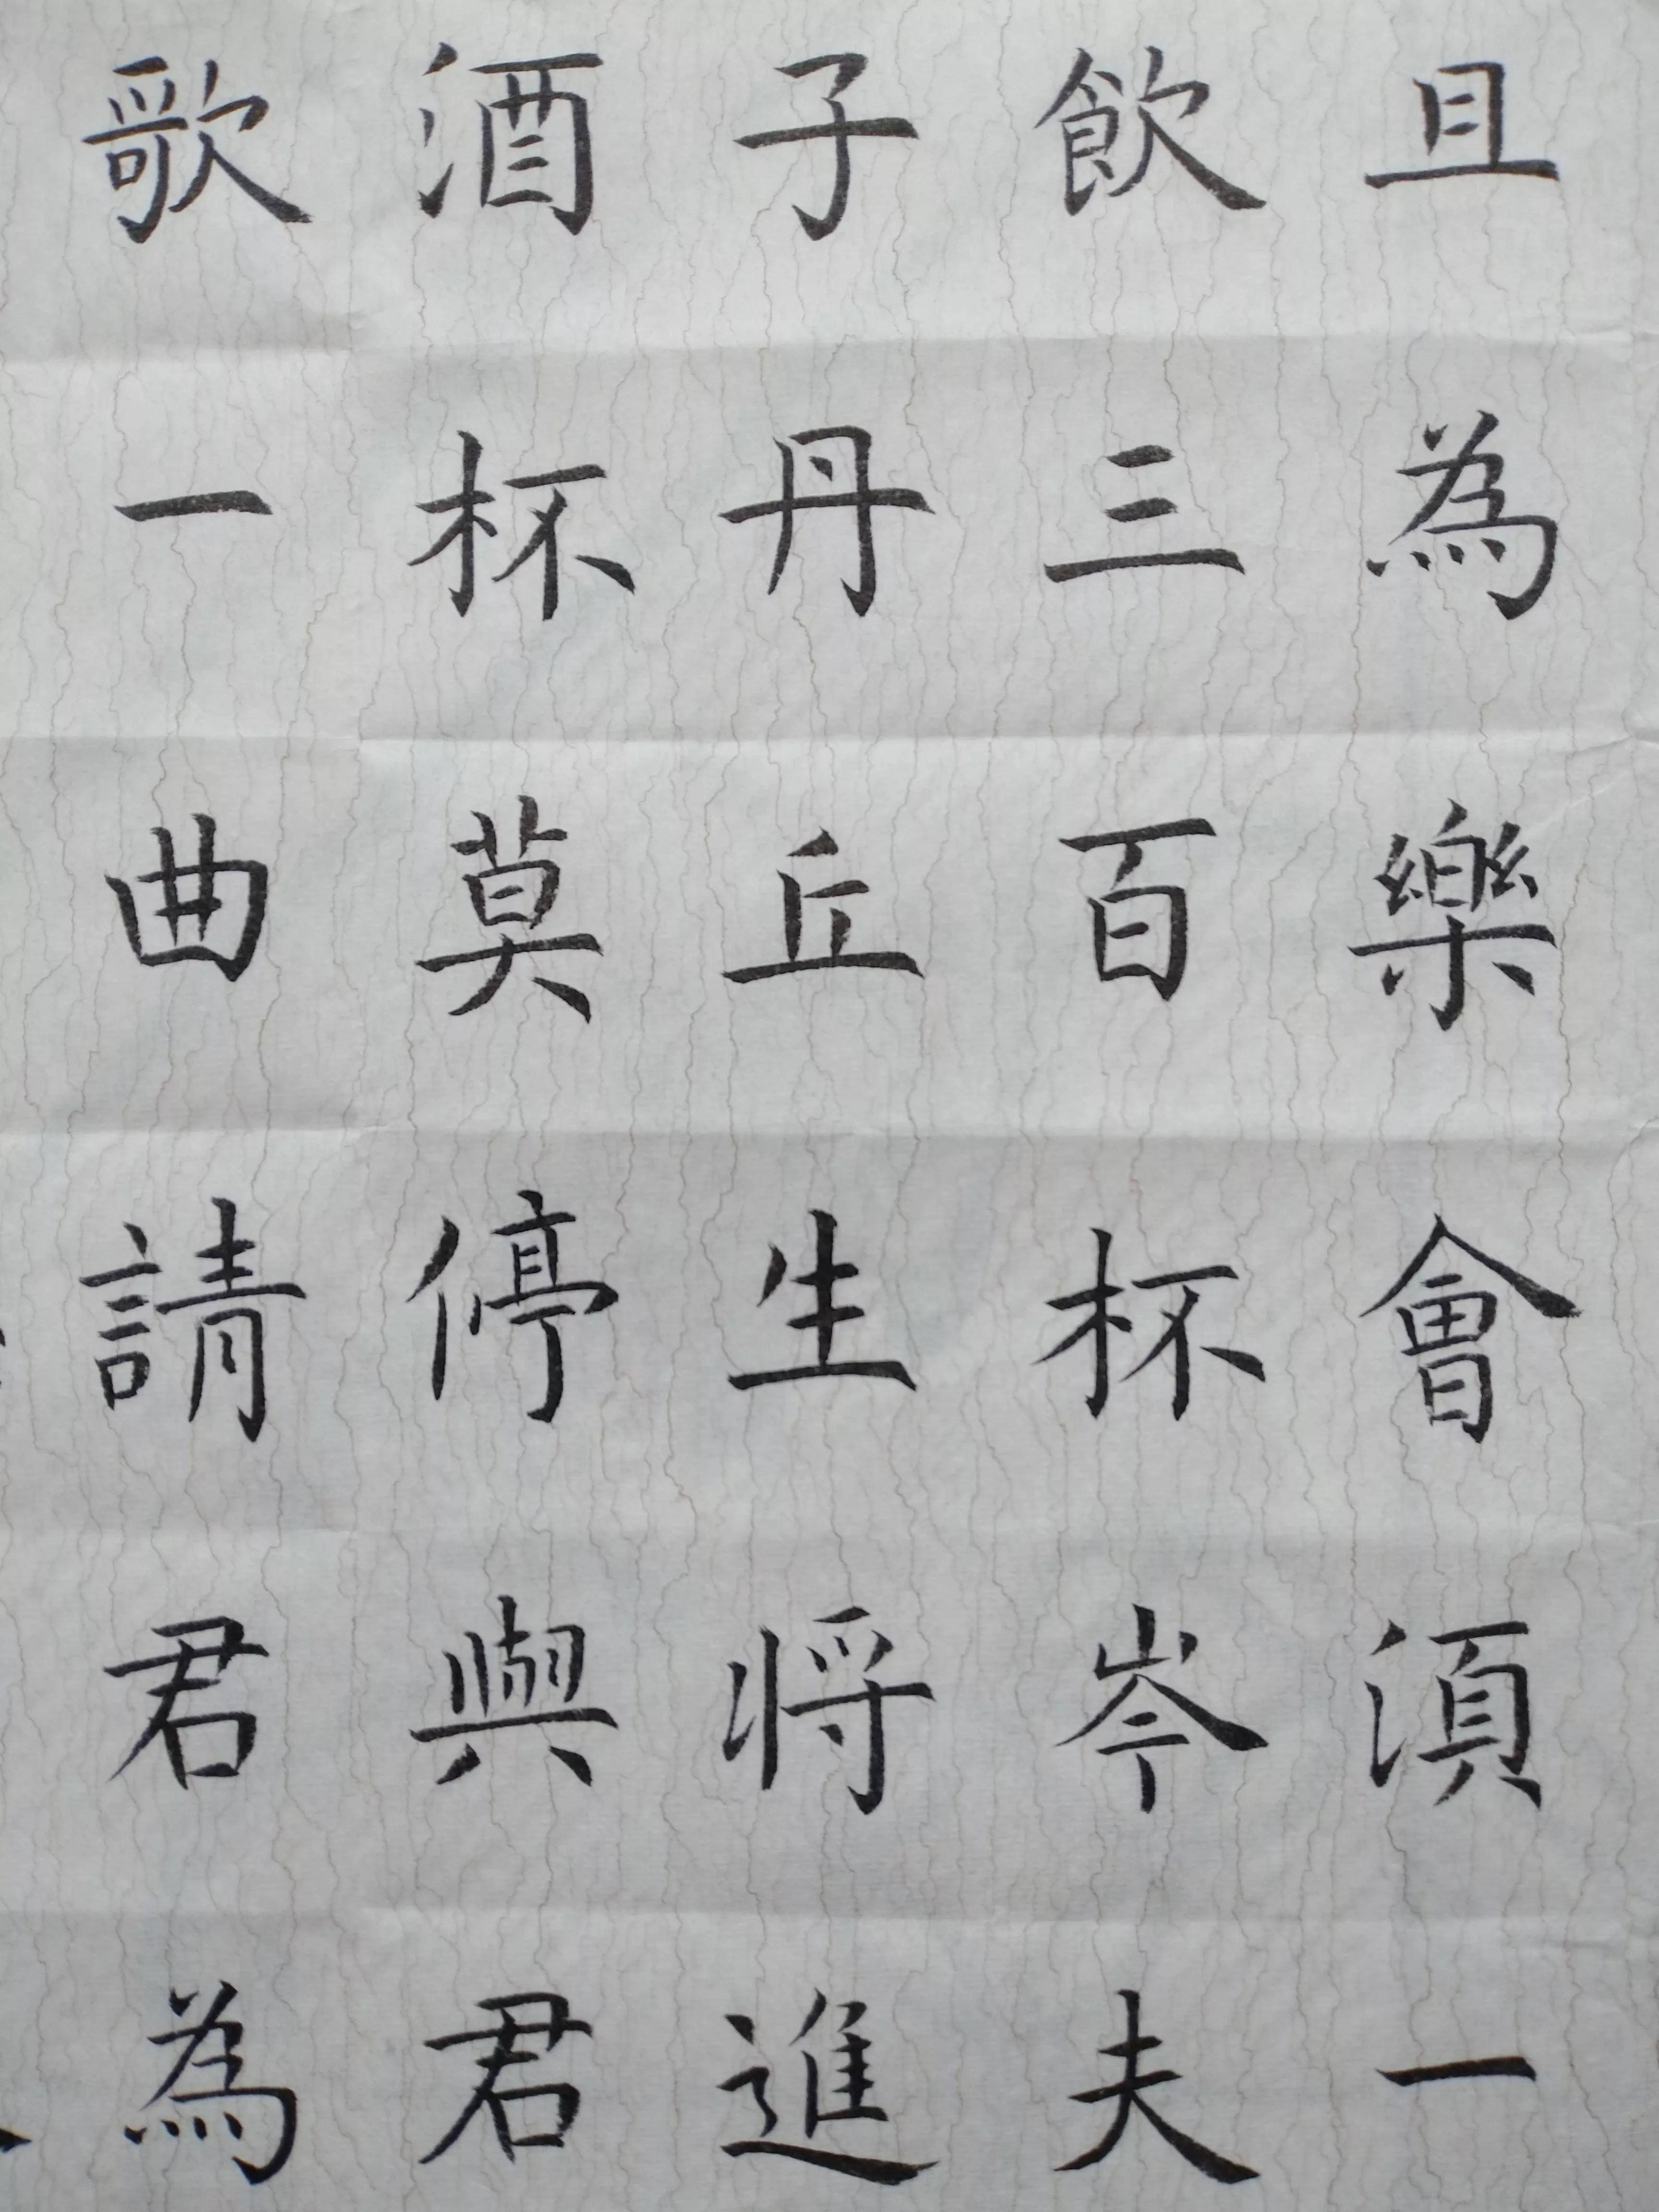 且為樂會須一
飲三百杯岑夫
子丹丘生将進
酒杯莫停與君
歌一曲請君為